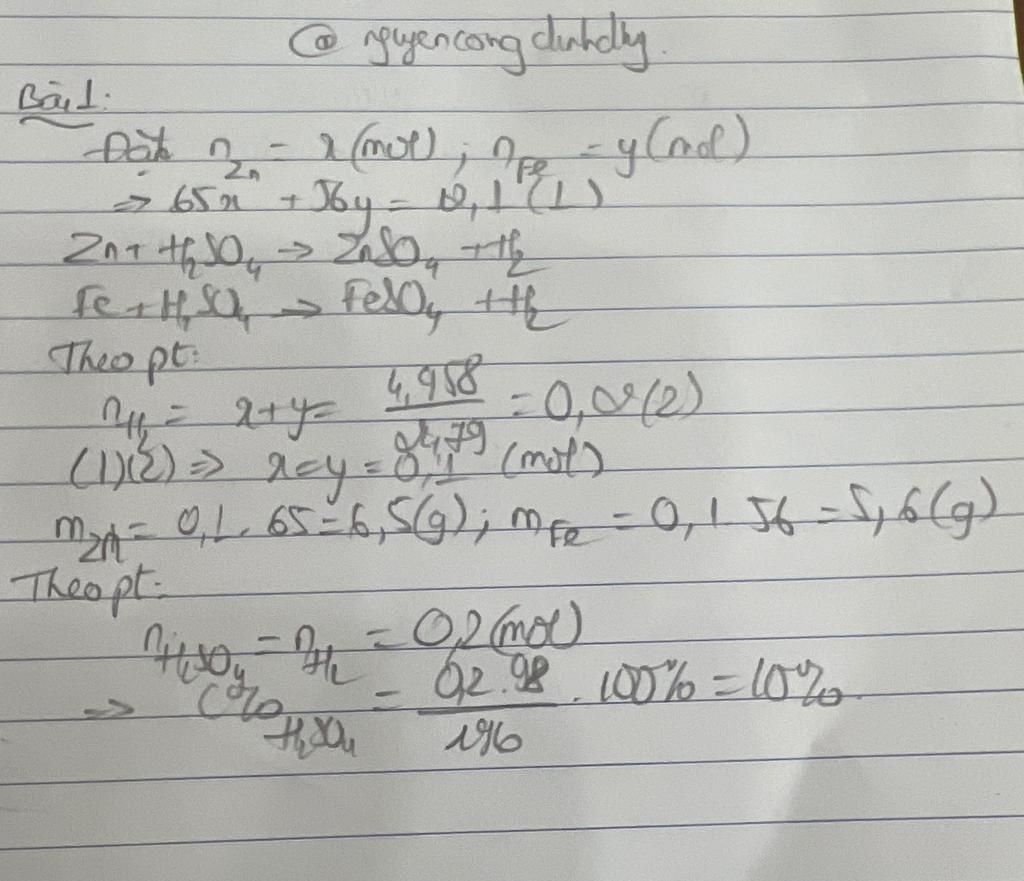 @ nguyencongduhdhy.
Bài 1:
Đặt n_Zn = x (mol); n_Fe = y (mol)
=> 65x + 56y = 12,1 (1)
Zn + H₂SO₄ → ZnSO₄ + H₂
Fe + H₂SO₄ → FeSO₄ + H₂
Theo pt:
n_H₂ = x + y = 4,958/24,79 = 0,2 (2)
(1)(2) => x = y = 0,1 (mol)
m_Zn = 0,1. 65 = 6,5 (g); m_Fe = 0,1 56 = 5,6 (g)
Theo pt:
n_H₂SO₄ = n_H₂ = 0,2 (mol)
=> C%_H₂SO₄ = 0,2.98/196 . 100% = 10%